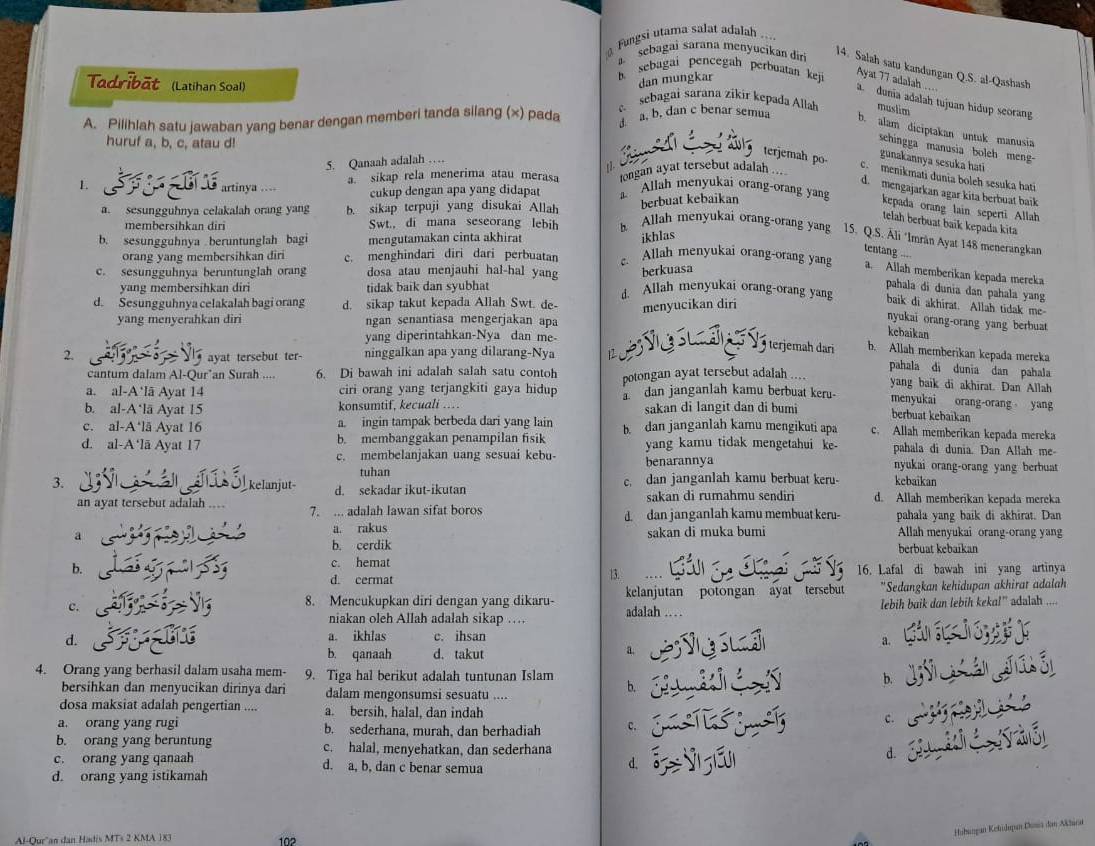 Tadrībāt (Latihan Soal)
A. Pilihlah satu jawaban yang benar dengan memberi tanda silang (×) pada
huruf a, b, c, atau d!
1. قَدْ أَفْلَحَ مَنْ تَزَكّٰى artinya ....
a. sesungguhnya celakalah orang yang
membersihkan diri
b. sesungguhnya beruntunglah bagi
orang yang membersihkan diri
c. sesungguhnya beruntunglah orang
yang membersihkan diri
d. Sesungguhnya celakalah bagi orang
yang menyerahkan diri
2. وَالْاٰخِرَةُ خَيْرٌ وَّأَبْقٰى ayat tersebut ter-
cantum dalam Al-Qur'an Surah ....
a. al-A'lā Ayat 14
b. al-A'lā Ayat 15
c. al-A'lā Ayat 16
d. al-A'lā Ayat 17
3. إِنَّ هٰذَا لَفِى الصُّحُفِ الْأُوْلٰى kelanjut-
an ayat tersebut adalah ....
a. صُحُفِ إِبْرٰهِيْمَ وَمُوْسٰى
b. وَذَكَرَ اسْمَ رَبِّهٖ فَصَلّٰى
c. وَالْاٰخِرَةُ خَيْرٌ وَّأَبْقٰى
d. قَدْ أَفْلَحَ مَنْ تَزَكّٰى
4. Orang yang berhasil dalam usaha mem-
bersihkan dan menyucikan dirinya dari
dosa maksiat adalah pengertian ....
a. orang yang rugi
b. orang yang beruntung
c. orang yang qanaah
d. orang yang istikamah
5. Qanaah adalah ....
a. sikap rela menerima atau merasa
cukup dengan apa yang didapat
b. sikap terpuji yang disukai Allah
Swt., di mana seseorang lebih
mengutamakan cinta akhirat
c. menghindari diri dari perbuatan
dosa atau menjauhi hal-hal yang
tidak baik dan syubhat
d. sikap takut kepada Allah Swt. de-
ngan senantiasa mengerjakan apa
yang diperintahkan-Nya dan me-
ninggalkan apa yang dilarang-Nya
6. Di bawah ini adalah salah satu contoh
ciri orang yang terjangkiti gaya hidup
konsumtif, kecuali ....
a. ingin tampak berbeda dari yang lain
b. membanggakan penampilan fisik
c. membelanjakan uang sesuai kebu-
tuhan
d. sekadar ikut-ikutan
7. ... adalah lawan sifat boros
a. rakus
b. cerdik
c. hemat
d. cermat
8. Mencukupkan diri dengan yang dikaru-
niakan oleh Allah adalah sikap ....
a. ikhlas c. ihsan
b. qanaah d. takut
9. Tiga hal berikut adalah tuntunan Islam
dalam mengonsumsi sesuatu ....
a. bersih, halal, dan indah
b. sederhana, murah, dan berhadiah
c. halal, menyehatkan, dan sederhana
d. a, b, dan c benar semua
Al-Qur'an dan Hadis MTs 2 KMA 183
102
Fungsi utama salat adalah ....
a. sebagai sarana menyucikan diri
b. sebagai pencegah perbuatan keji
dan mungkar
c. sebagai sarana zikir kepada Allah
d. a, b, dan c benar semua
11. وَاللهُ يُحِبُّ الْمُحْسِنِيْنَ terjemah po-
tongan ayat tersebut adalah ....
a. Allah menyukai orang-orang yang
berbuat kebaikan
b. Allah menyukai orang-orang yang
ikhlas
c. Allah menyukai orang-orang yang
berkuasa
d. Allah menyukai orang-orang yang
menyucikan diri
12. وَلَا تَبْغِ الْفَسَادَ فِى الْأَرْضِ terjemah dari
potongan ayat tersebut adalah ....
a. dan janganlah kamu berbuat keru-
sakan di langit dan di bumi
b. dan janganlah kamu mengikuti apa
yang kamu tidak mengetahui ke-
benarannya
c. dan janganlah kamu berbuat keru-
sakan di rumahmu sendiri
d. dan janganlah kamu membuat keru-
sakan di muka bumi
13. وَلَا تَنْسَ نَصِيْبَكَ مِنَ الدُّنْيَا ....
kelanjutan potongan ayat tersebut
adalah ....
a. الْفَسَادَ فِى الْأَرْضِ
b. لَا يُحِبُّ الْمُفْسِدِيْنَ
c. وَأَحْسِنْ كَمَا أَحْسَنَ
d. الدَّارَ الْاٰخِرَةَ
14. Salah satu kandungan Q.S. al-Qashash
Ayat 77 adalah ....
a. dunia adalah tujuan hidup seorang
muslim
b. alam diciptakan untuk manusia
sehingga manusia boleh meng-
gunakannya sesuka hati
c. menikmati dunia boleh sesuka hati
d. mengajarkan agar kita berbuat baik
kepada orang lain seperti Allah
telah berbuat baik kepada kita
15. Q.S. Āli 'Imrān Ayat 148 menerangkan
tentang ....
a. Allah memberikan kepada mereka
pahala di dunia dan pahala yang
baik di akhirat. Allah tidak me-
nyukai orang-orang yang berbuat
kebaikan
b. Allah memberikan kepada mereka
pahala di dunia dan pahala
yang baik di akhirat. Dan Allah
menyukai orang-orang yang
berbuat kebaikan
c. Allah memberikan kepada mereka
pahala di dunia. Dan Allah me-
nyukai orang-orang yang berbuat
kebaikan
d. Allah memberikan kepada mereka
pahala yang baik di akhirat. Dan
Allah menyukai orang-orang yang
berbuat kebaikan
16. Lafal di bawah ini yang artinya
"Sedangkan kehidupan akhirat adalah
lebih baik dan lebih kekal" adalah ....
a. بَلْ تُؤْثِرُوْنَ الْحَيٰوةَ الدُّنْيَا
b. إِنَّ هٰذَا لَفِى الصُّحُفِ الْأُوْلٰى
c. صُحُفِ إِبْرٰهِيْمَ وَمُوْسٰى
d. إِنَّ اللهَ لَا يُحِبُّ الْمُفْسِدِيْنَ
Hubungan Kehidupan Dunia dan Akhirat